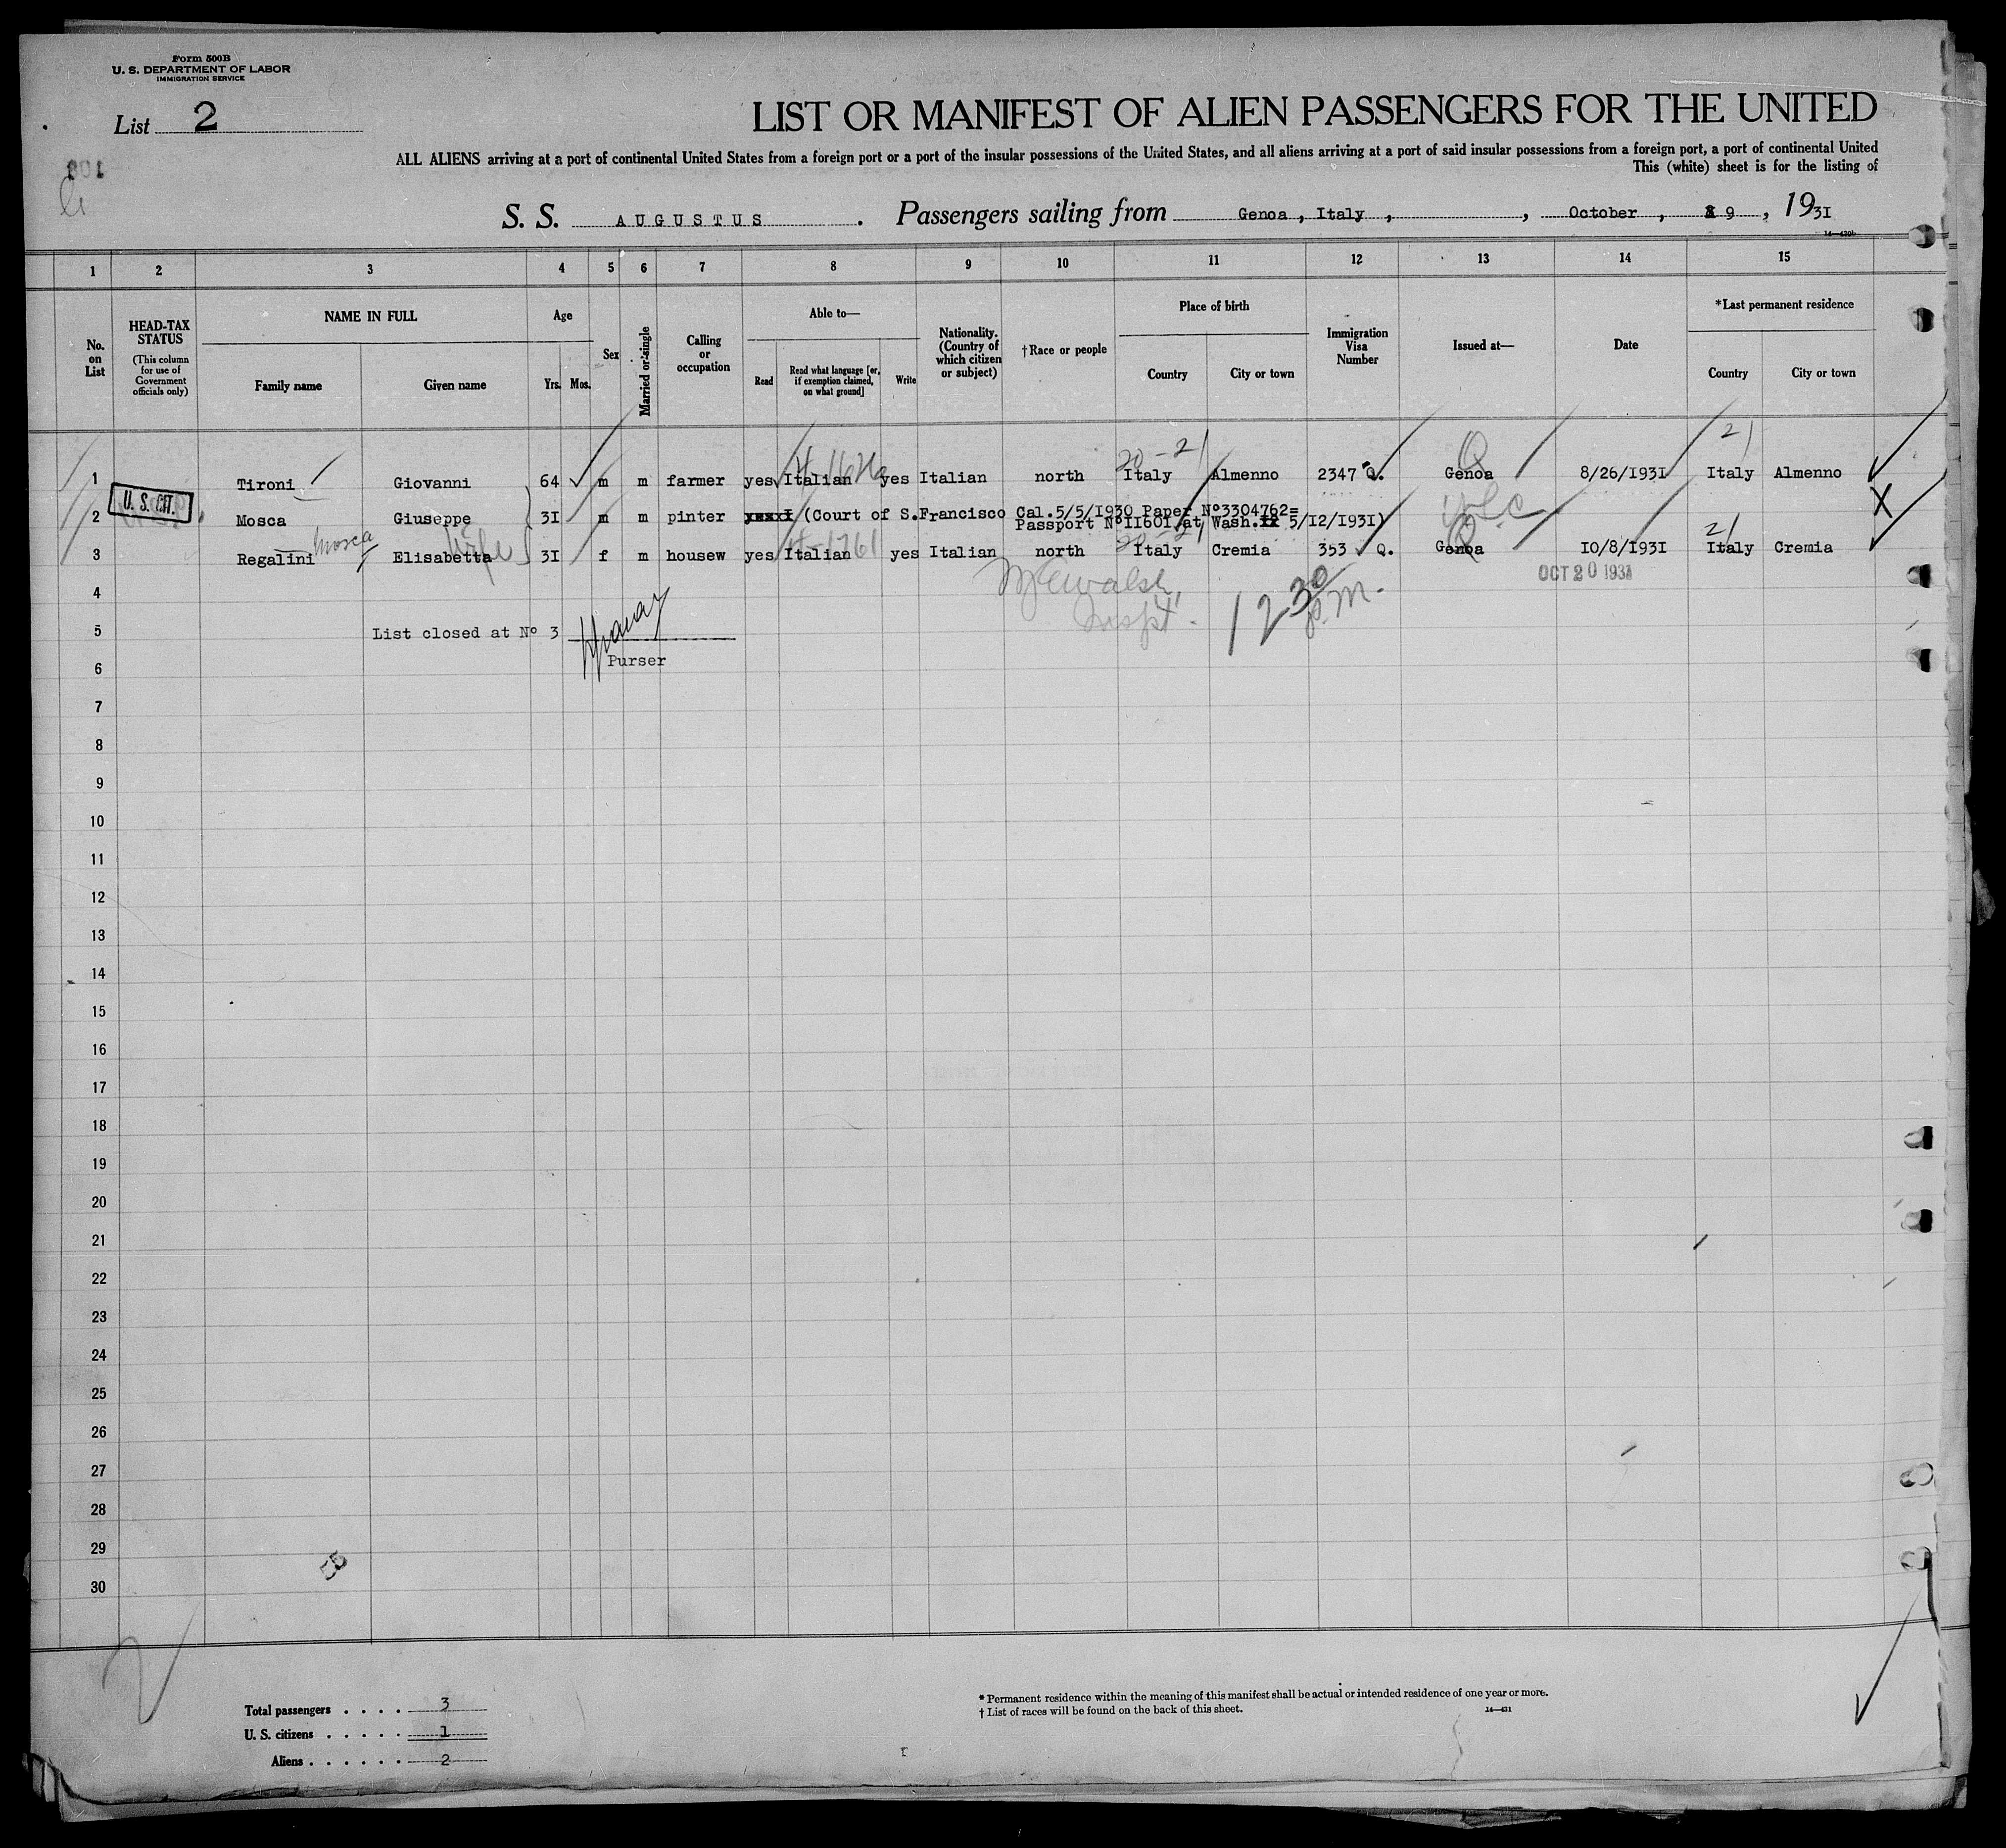 Form 500B
U. S. DEPARTMENT OF LABOR
IMMIGRATION SERVICE
List 2
LIST OR MANIFEST OF ALIEN PASSENGERS FOR THE UNITED
ALL ALIENS arriving at a port of continental United States from a foreign port or a port of the insular possessions of the United States, and all aliens arriving at a port of said insular possessions from a foreign port, a port of continental United
This (white) sheet is for the listing of
S. S. AUGUSTUS. Passengers sailing from Genoa, Italy, , October, 9, 1931
1 2 3 4 5 6 7 8 9 10 11 12 13 14 15
No. on List
HEAD-TAX STATUS
(This column for use of Government officials only)
NAME IN FULL
Family name
Given name
Age
Yrs. Mos.
Sex
Married or single
Calling or occupation
Able to—
Read
Read what language [or, if exemption claimed, on what ground]
Write
Nationality. (Country of which citizen or subject)
†Race or people
Place of birth
Country
City or town
Immigration Visa Number
Issued at—
Date
*Last permanent residence
Country
City or town
20-21 Q 21
1 Tironi Giovanni 64 m m farmer yes Italian yes Italian north Italy Almenno 2347 Q. Genoa 8/26/1931 Italy Almenno
U. S. CIT.
2 Mosca Giuseppe 31 m m pinter (Court of S.Francisco Cal.5/5/1930 Paper Nº3304762=
Passport Nº11601 at Wash. 5/12/1931) X
Mosca wife 20-21 Q 21
3 Regalini Elisabetta 31 f m housew yes Italian yes Italian north Italy Cremia 353 Q. Genoa 10/8/1931 Italy Cremia
OCT 20 1931
4
Inspt. 12 30 p.m.
5 List closed at Nº 3
Purser
6
7
8
9
10
11
12
13
14
15
16
17
18
19
20
21
22
23
24
25
26
27
28
29
30
Total passengers . . . . 3
U. S. citizens . . . . . 1
Aliens . . . . . . 2
* Permanent residence within the meaning of this manifest shall be actual or intended residence of one year or more.
† List of races will be found on the back of this sheet.
14—431